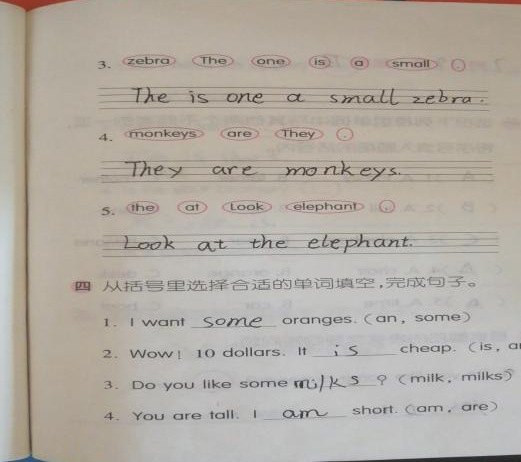 3. zebra The one is a small .
The is one a small zebra.
4. monkeys are They .
They are monkeys.
5. the at Look elephant .
Look at the elephant.
四 从括号里选择合适的单词填空,完成句子。
1. I want some oranges. (an, some)
2. Wow! 10 dollars. It is cheap. (is, a
3. Do you like some milks? (milk, milks)
4. You are tall. I am short. (am, are)